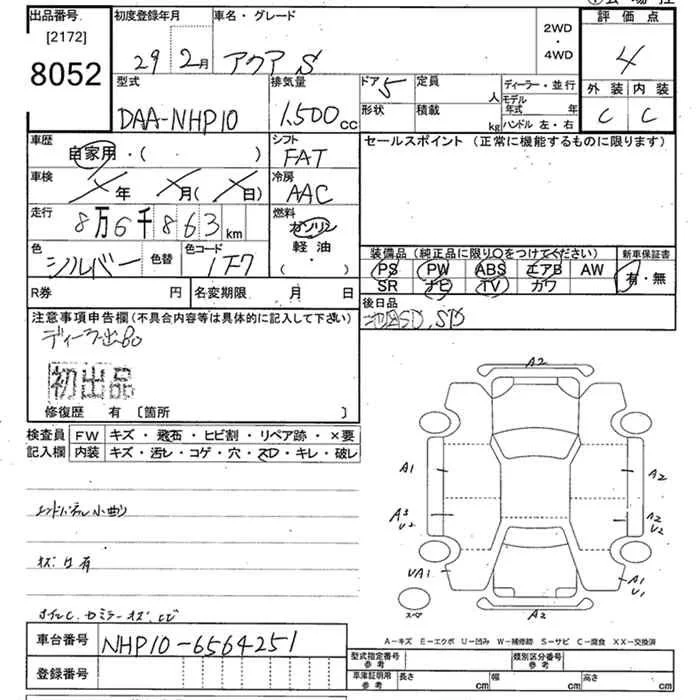 出品番号
[2172]
8052
初度登録年月
29 2月
車名・グレード
アクア S
2WD
・
4WD
評価点
4
外装 内装
C C
型式
DAA-NHP10
排気量
1,500cc
ドア 5
定員
人
形状
積載
kg
ディーラー・並行
モデル年式 年
ハンドル 左・右
車歴
自家用・( )
シフト
FAT
セールスポイント (正常に機能するものに限ります)
車検
年 月( 日)
冷房
AAC
走行
8万6千863km
燃料
ガソリン
軽油・
( ・ )
色
シルバー
色替
色コード
1F7
装備品 (純正品に限り○をつけてください)
PS PW ABS エアB AW
SR ナビ TV カワ
新車保証書
有・無
R券 円
名変期限 月 日
後日品
注意事項申告欄(不具合内容等は具体的に記入して下さい)
初出品
修復歴 有 [箇所 ]
検査員
記入欄
FW キズ・飛石・ヒビ割・リペア跡・×要
内装 キズ・汚レ・コゲ・穴・スレ・キレ・破レ
エンドパネル小曲り
キズ凹有
A2
A1
A2
A3
U2
A2
U2
UA1
A1
U1
スペア
A2
A－キズ E－エクボ U－凹み W－補修跡 S－サビ C－腐食 XX－交換済
車台番号
NHP10-6564251
登録番号
型式指定番号
参考
類別区分番号
参考
車庫証明用
参考
長さ cm
幅 cm
高さ cm